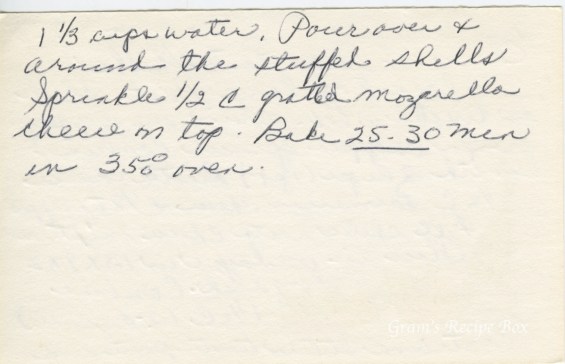 1 1/3 cups water. Pour over &
around the stuffed shells
Sprinkle 1/2 C grated mozarella
cheese on top. Bake 25-30 min
in 350° oven.
Gram's Recipe Box